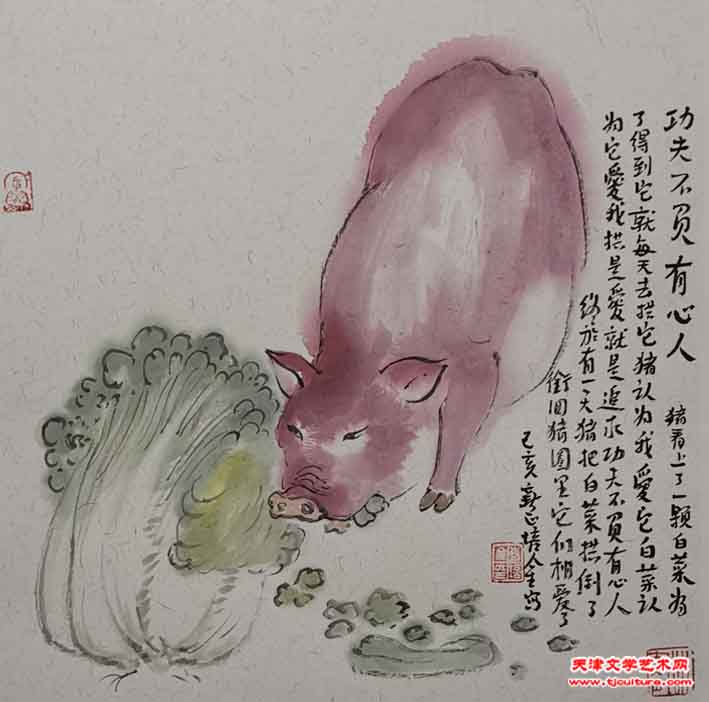 功夫不负有心人 猪看上了一顆白菜为
了得到它就每天去拱它猪认为我愛它白菜认
为它愛我拱是愛就是追求功夫不负有心人
终於有一天猪把白菜拱倒了
銜回猪圈里它们相爱了
己亥
天津文学艺术网
www.tjculture.com